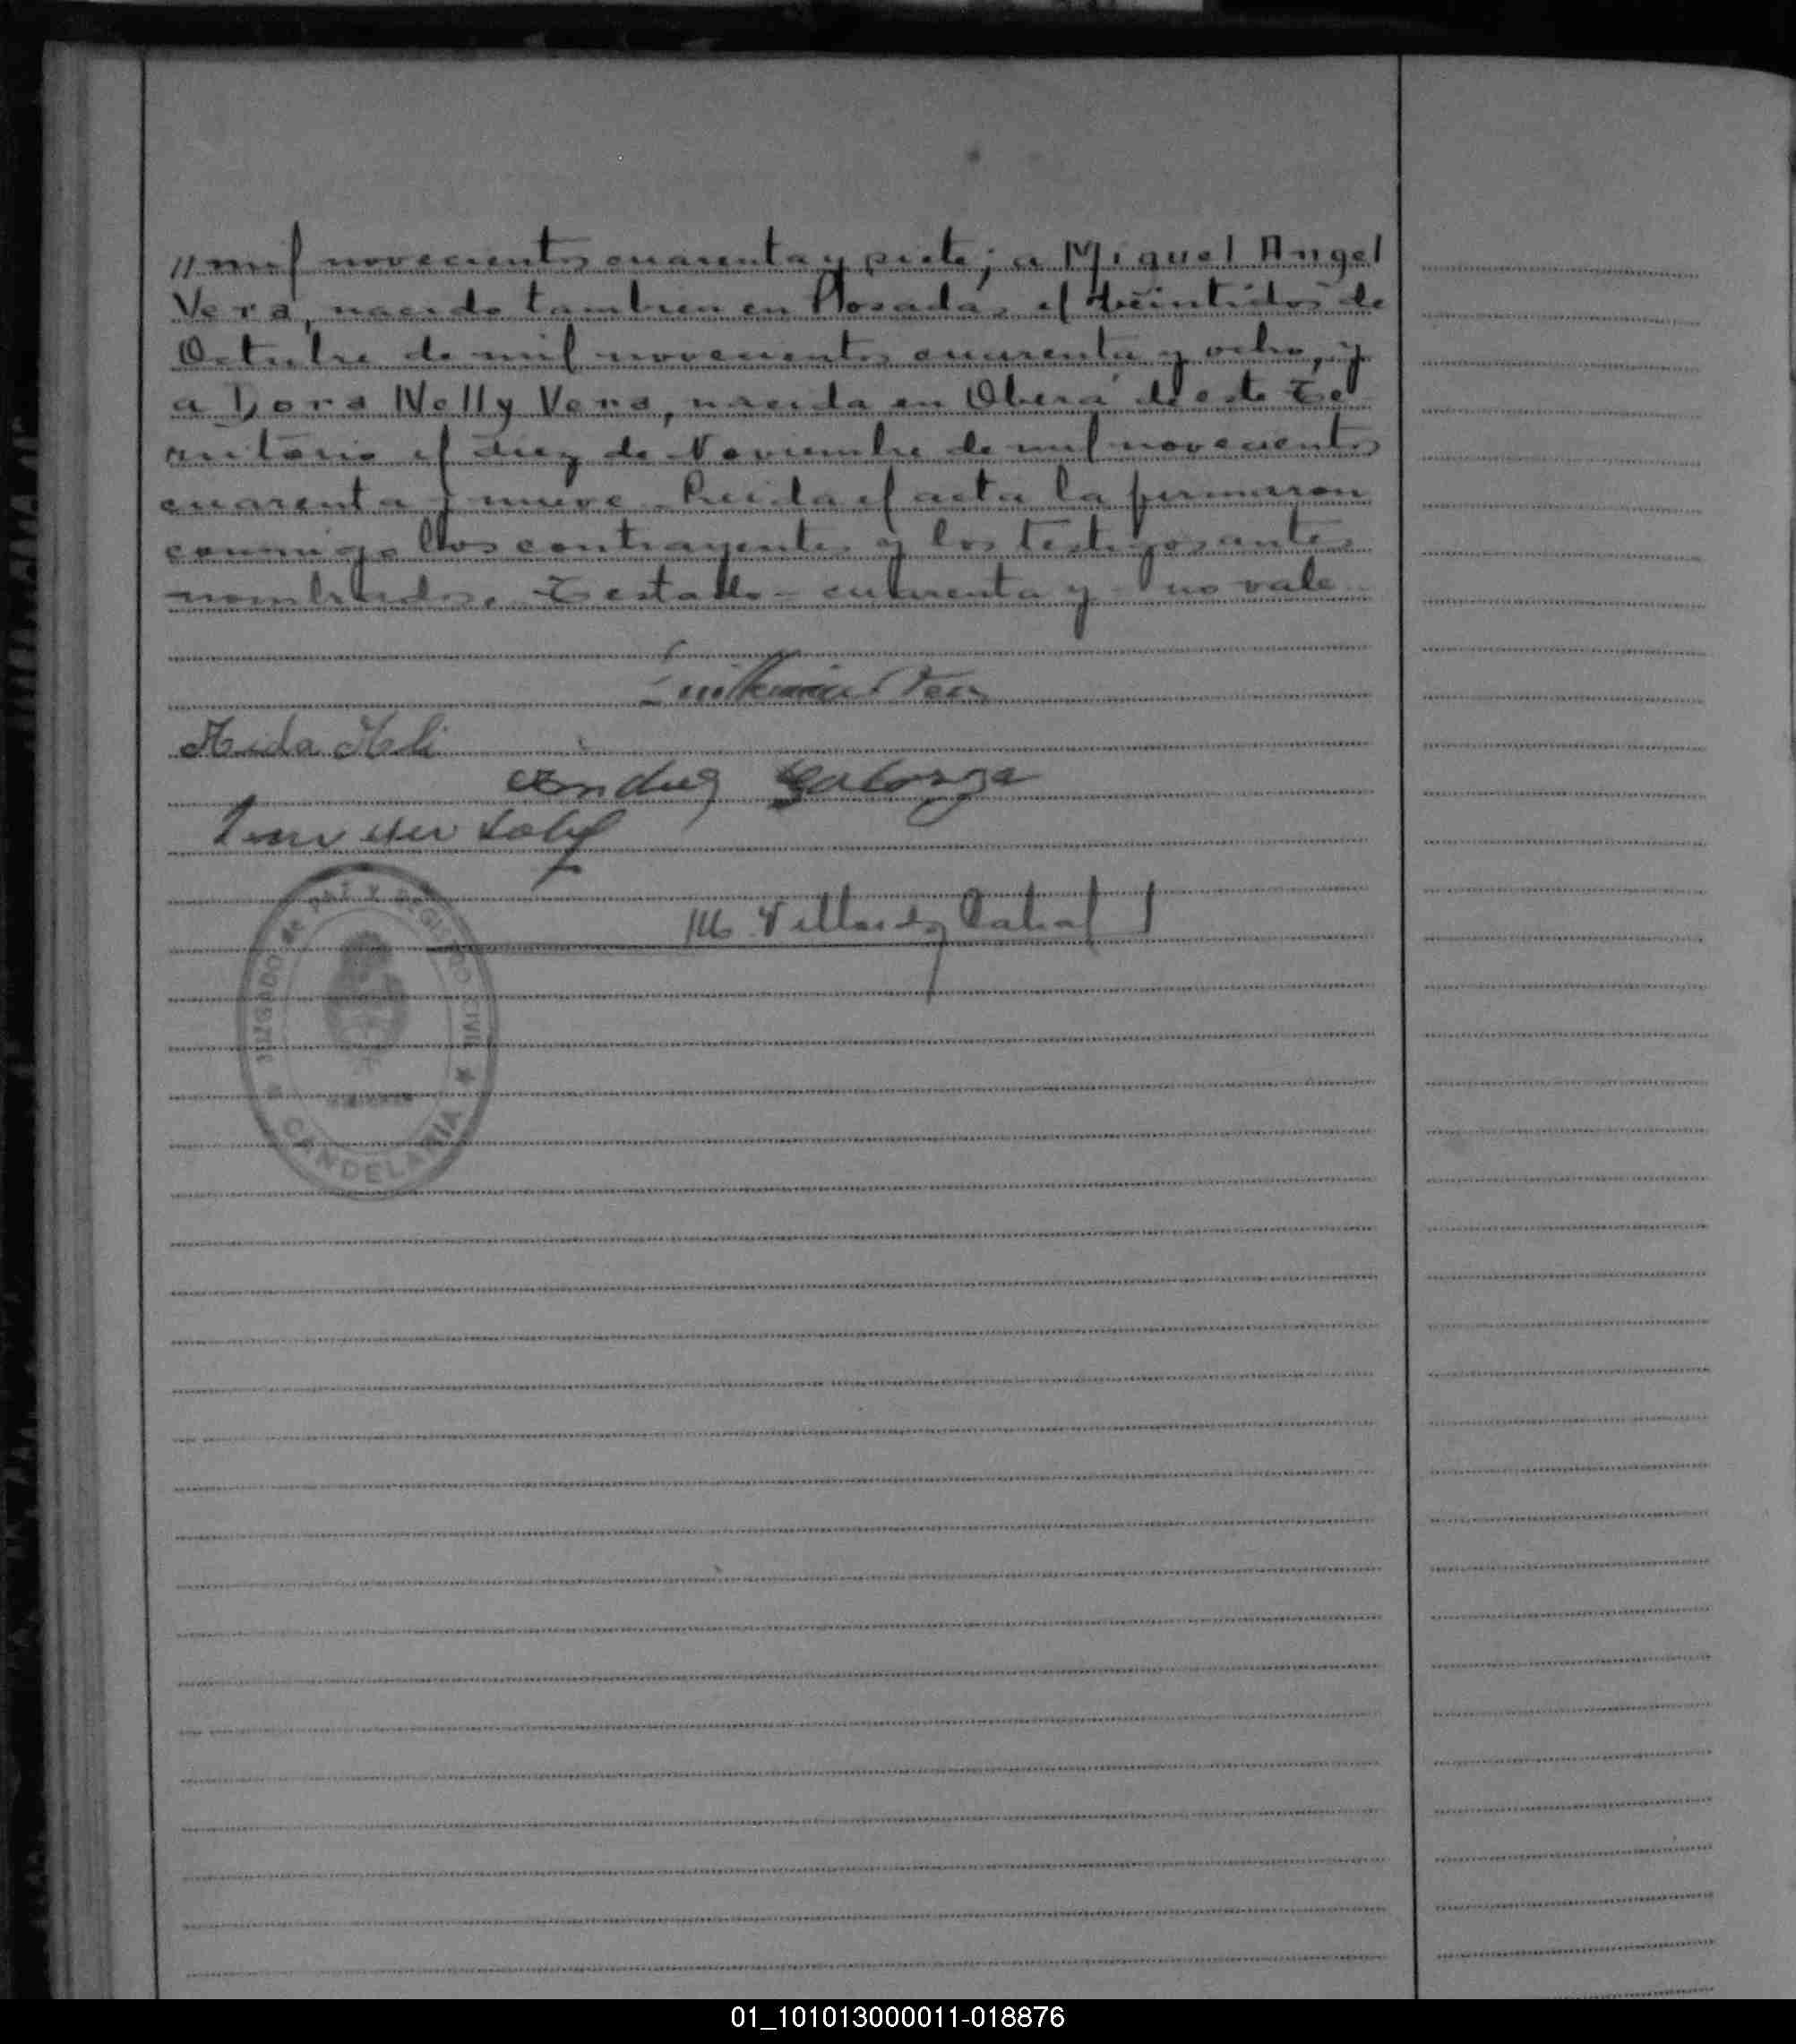 // mil novecientos cuarenta y siete; a Miguel Angel
Vera, nacido tambien en Posadas el veintidos de
Octubre de mil novecientos cuarenta y ocho, y
a Dora Nelly Vera, nacida en Oberá de este Te-
rritorio el diez de Noviembre de mil novecientos
cuarenta y nueve. Leida el acta la firmaron
conmigo los contrayentes y los testigos antes
nombrados. Testado - cuarenta y - no vale
Vera
Andres
M. Cabral
JUZGADO de PAZ Y REGISTRO CIVIL
CANDELARIA
01_101013000011-018876